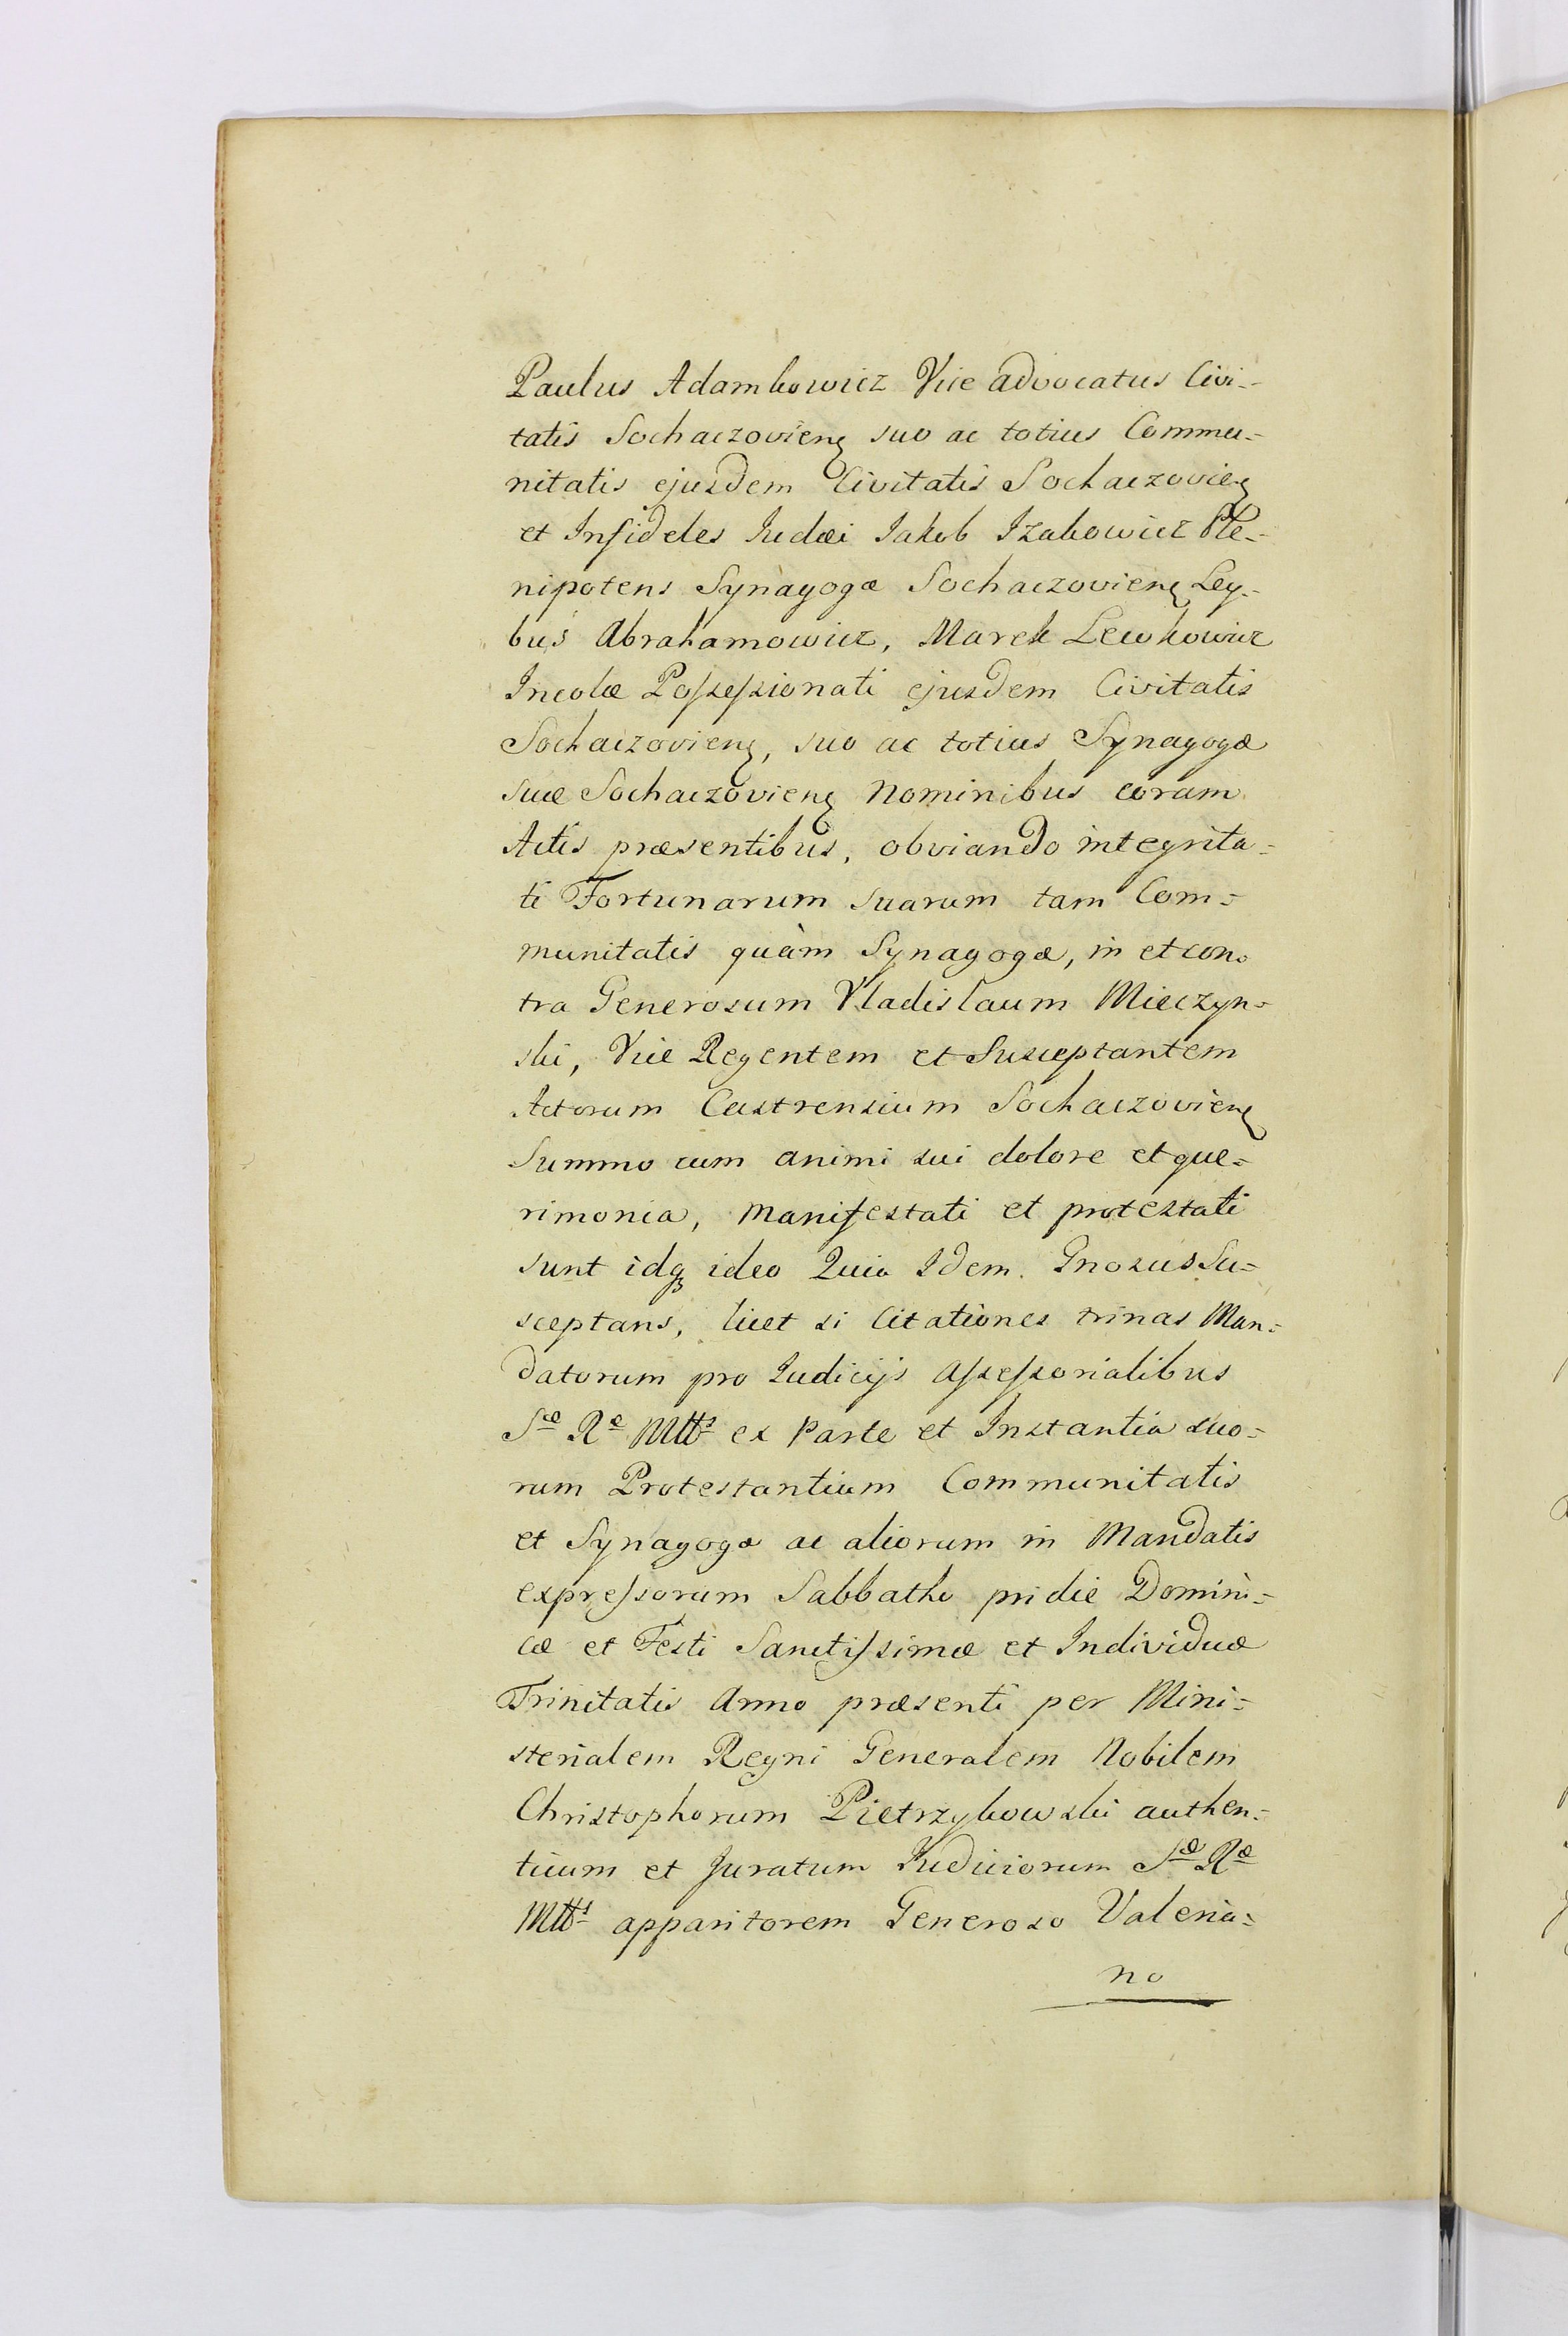 Paulus Adamkowicz Vice advocatus Civi=
tatis Sochaczovienꝫ suo ac totius Commu=
nitatis ejusdem Civitatis Sochaczovienꝫ
et Infideles Iudæi Iakob Izakowicz Ple=
nipotens Synagogæ Sochaczovienꝫ Ley=
bus Abrahamowicz, Marek Lewkowicz
Incolæ Poſseſsionati ejusdem Civitatis
Sochaczovienꝫ, suo ac totius Synagogæ
suæ Sochaczovienꝫ Nominibus coram
Actis præsentibus, obviando integrita=
ti Fortunarum suarum tam Com=
munitatis quàm Synagogæ, in et con=
tra Generosum Vladislaum Mieczyn=
ski, Vice Regentem et Susceptantem
Actorum Castrensium Sochaczovienꝫ
Summo cum animi sui dolore et que=
rimonia, Manifestati et protestati
sunt idqꝫ ideo Quia Idem Gnosus Su=
sceptans, licet si Citationes trinas Man=
datorum pro Iudicijs Aſseſsorialibus
Sæ Ræ Mttis ex Parte et Instantia suo=
rum Protestantium Communitatis
et Synagogæ ac aliorum in Mandatis
expreſsorum Sabbatho pridie Domini=
cæ et Festi Sanctiſsimæ et Individuæ
Trinitatis Anno præsenti per Mini=
sterialem Regni Generalem Nobilem
Christophorum Pietrzykowski authen=
ticum et Juratum Iudiciorum Sæ Ræ
Mttis apparitorem Generoso Valeria=
no